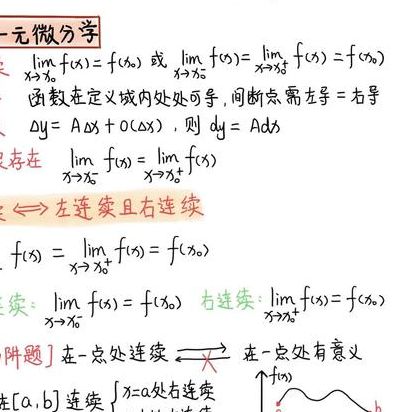 一元微分学
lim x→x₀ f(x) = f(x₀) 或 lim x→x₀⁻ f(x) = lim x→x₀⁺ f(x) = f(x₀)
函数在定义域内处处可导，间断点需左导 = 右导
Δy = AΔx + o(Δx)，则 dy = Adx
存在 lim x→x₀⁻ f(x) = lim x→x₀⁺ f(x)
⟺ 左连续且右连续
f(x) = lim x→x₀⁺ f(x) = f(x₀)
连续: lim x→x₀⁻ f(x) = f(x₀) 右连续: lim x→x₀⁺ f(x) = f(x₀)
阱题] 在一点处连续 ⇌ 在一点处有意义
f(x)
在[a,b]连续 { x=a处右连续